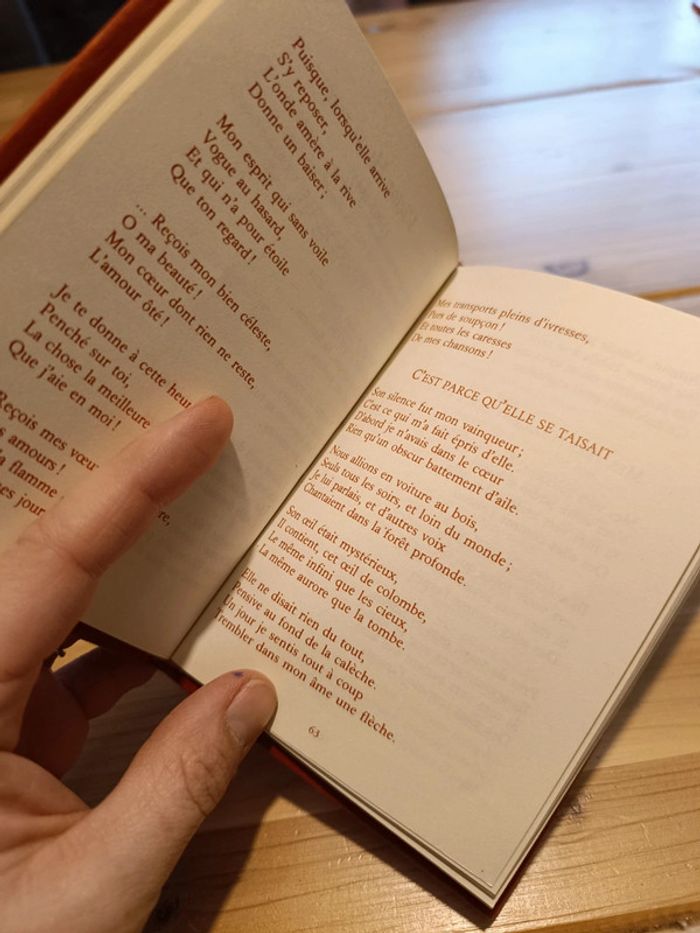 Puisque, lorsqu'elle arrive
S'y reposer,
L'onde amère à la rive
Donne un baiser ;
Mon esprit qui sans voile
Vogue au hasard,
Et qui n'a pour étoile
Que ton regard !
... Reçois mon bien céleste,
O ma beauté !
Mon cœur dont rien ne reste,
L'amour ôté !
Je te donne à cette heur
Penché sur toi,
La chose la meilleure
Que j'aie en moi !
Reçois mes vœu
s amours !
a flamme
es jour
re,
Mes transports pleins d'ivresses,
Purs de soupçon !
Et toutes les caresses
De mes chansons !
C'EST PARCE QU'ELLE SE TAISAIT
Son silence fut mon vainqueur ;
C'est ce qui m'a fait épris d'elle.
D'abord je n'avais dans le cœur
Rien qu'un obscur battement d'aile.
Nous allions en voiture au bois,
Seuls tous les soirs, et loin du monde ;
Je lui parlais, et d'autres voix
Chantaient dans la forêt profonde.
Son œil était mystérieux,
Il contient, cet œil de colombe,
Le même infini que les cieux,
La même aurore que la tombe.
Elle ne disait rien du tout,
Pensive au fond de la calèche.
Un jour je sentis tout à coup
Trembler dans mon âme une flèche.
63